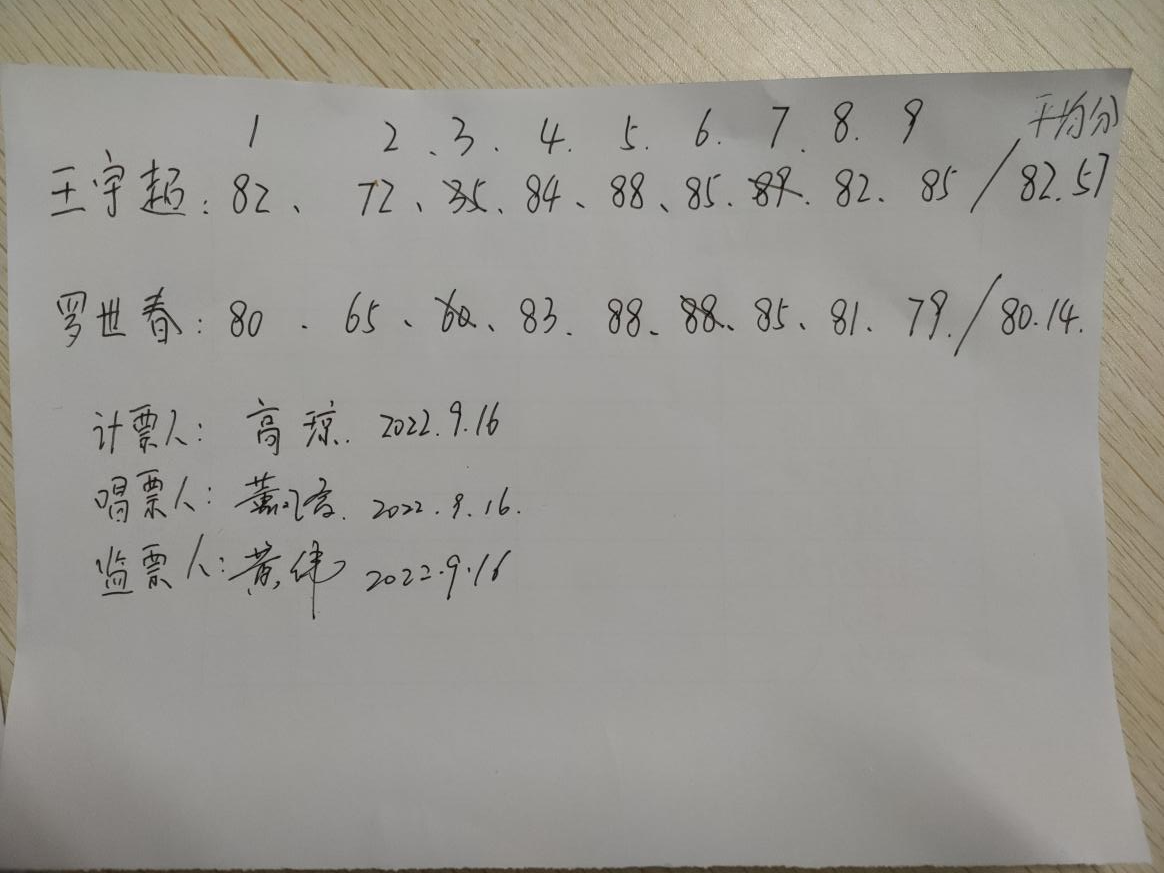 1 2、3. 4. 5. 6. 7. 8. 9 平均分
王宇超：82、72、35、84、88、85.89.82.85/82.57
罗世春：80.65、60、83.88、88、85、81.79./80.14.
计票人：高琼. 2022.9.16
唱票人：黄 2022.9.16.
监票人：黄伟 2022.9.16